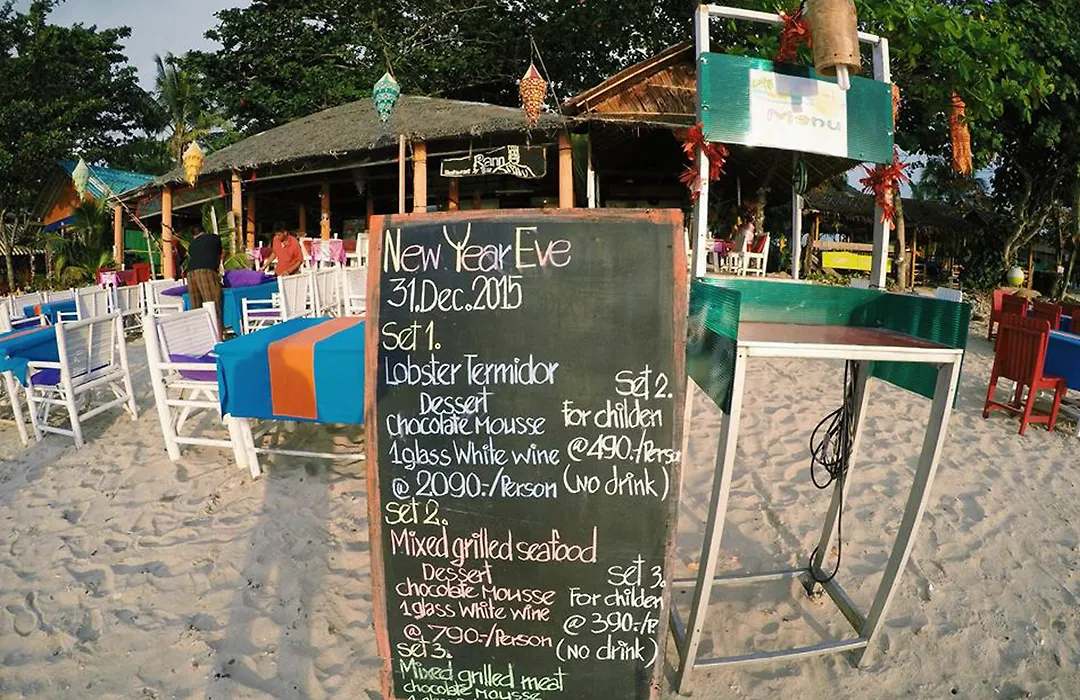 Menu
New Year Eve
31.Dec.2015
Set 1.
Lobster Termidor
Dessert
Chocolate Mousse
1glass White wine
@ 2090.-/Person
Set 2.
For childen
@490.-/Perso
(No drink)
Set 2.
Mixed grilled seafood
Dessert
chocolate Mousse
1glass White wine
@ 790.-/Person
Set 3.
For childen
@ 390.-/P.
(No drink)
Set 3.
Mixed grilled meat
chocolate Mousse